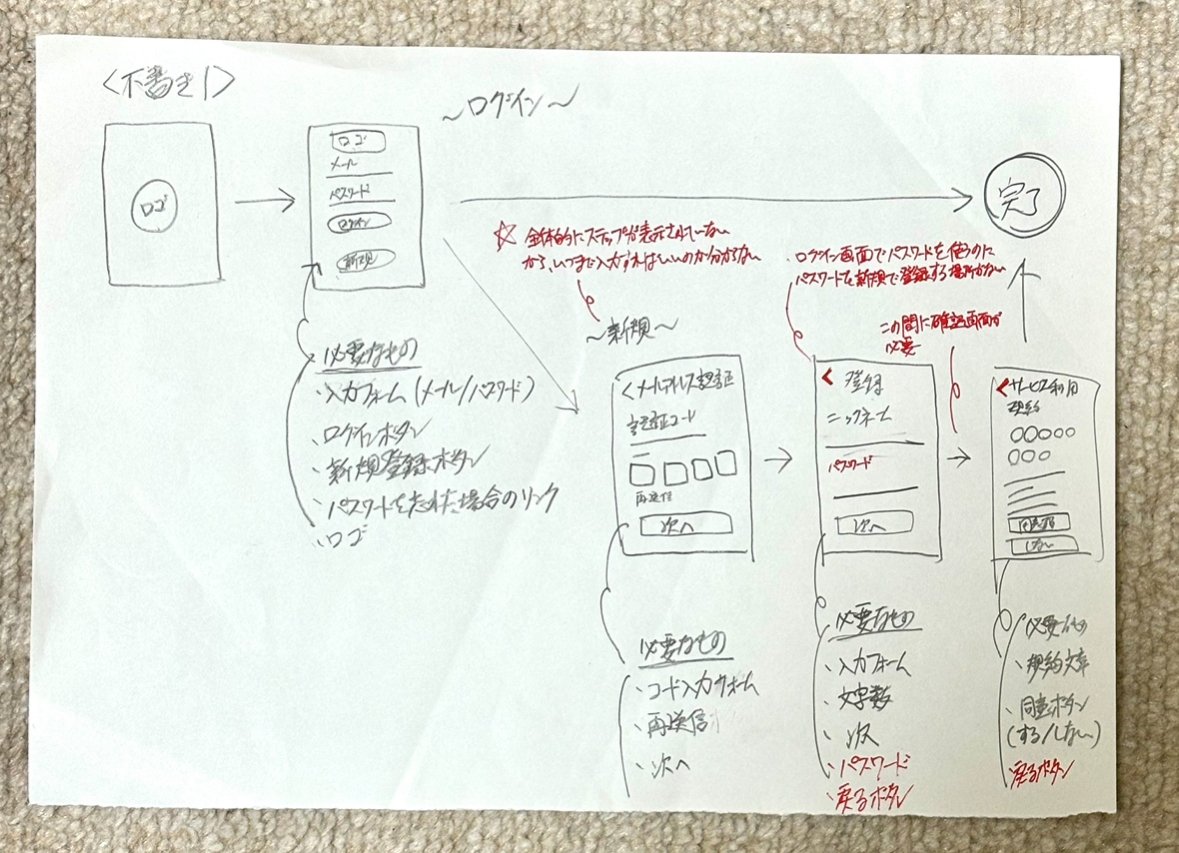 <下書き1>
ロゴ
~ログイン~
ロゴ
メール
パスワード
ログイン
新規
完了
☆ 全体的にステップが表示されていない
から、いつまで入力すればいいのか分からない
・ログイン画面でパスワードを使うのに
パスワードを新規で登録する場所がない
この間に確認画面が
必要
必要なもの
・入力フォーム(メール/パスワード)
・ログインボタン
・新規登録ボタン
・パスワードを忘れた場合のリンク
・ロゴ
~新規~
<メールアドレス認証
認証コード
再送信
次へ
必要なもの
・コード入力フォーム
・再送信
・次へ
<登録
ニックネーム
パスワード
次へ
必要なもの
・入力フォーム
・文字数
・次
・パスワード
・戻るボタン
<サービス利用
規約
〇〇〇〇〇
〇〇〇
同意する
しない
必要なもの
・規約文章
・同意ボタン
(する/しない)
・戻るボタン